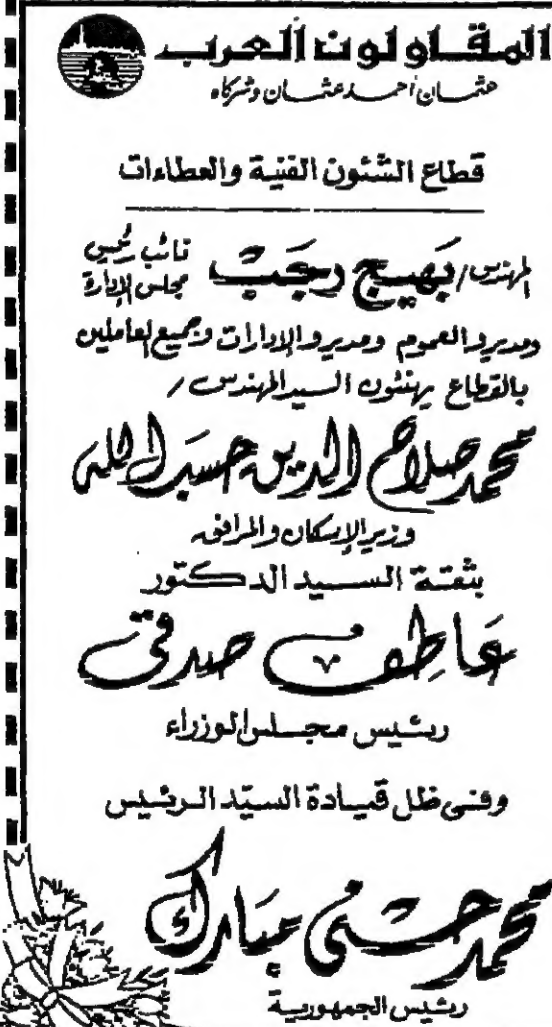 المقاولون العرب
عثمان أحمد عثمان وشركاه
قطاع الشئون الفنية والعطاءات
المهندس/ بهيج رجب نائب رئيس مجلس الإدارة
ومديرو العموم ومديرو الإدارات وجميع العاملين
بالقطاع يهنئون السيد المهندس/
محمد صلاح الدين حسب الله
وزير الإسكان والمرافق
بثقة السيد الدكتور
عاطف صدقى
رئيس مجلس الوزراء
وفى ظل قيادة السيد الرئيس
محمد حسنى مبارك
رئيس الجمهورية